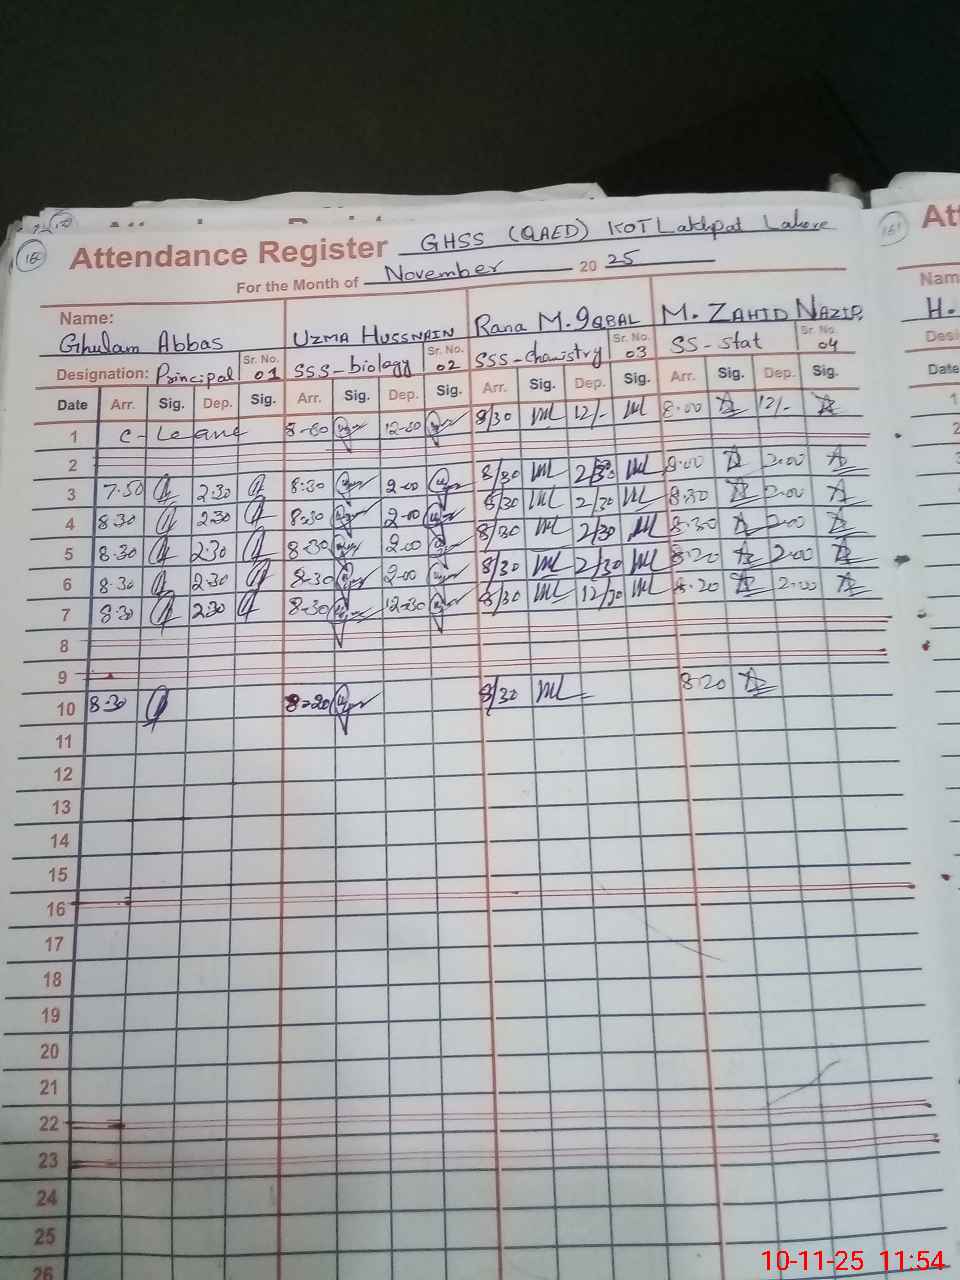 Attendance Register GHSS (QAED) KOT Lakhpat Lahore
For the Month of November 20 25
Name:
Ghulam Abbas UZMA HUSSNAIN Rana M. IQBAL M. ZAHID NAZIR H.
Designation: Principal Sr. No. 01 SSS-biology Sr. No. 02 SSS-Chamistry Sr. No. 03 SS-Stat Sr. No. 04
Date Arr. Sig. Dep. Sig. Arr. Sig. Dep. Sig. Arr. Sig. Dep. Sig. Arr. Sig. Dep. Sig. Date
1 C- 8/30 12/- 8.00 12/- 1
2 2
3 7.50 2.30 8:30 2.00 8/30 8.00 2.00
4 8.30 2.30 8.30 2.00 8/30 2/30 8.30 2.00
5 8.30 2.30 8.30 2.00 8/30 2/30 8.30 2.00
6 8.30 2.30 8.30 2.00 8/30 2/30 8.20 2.00
7 8.30 2.30 8.30 12.30 8/30 12/30 8.20 2.00
8
9
10 8.30 8.20 8/30 8.20
11
12
13
14
15
16
17
18
19
20
21
22
23
24
25
26
10-11-25 11:54